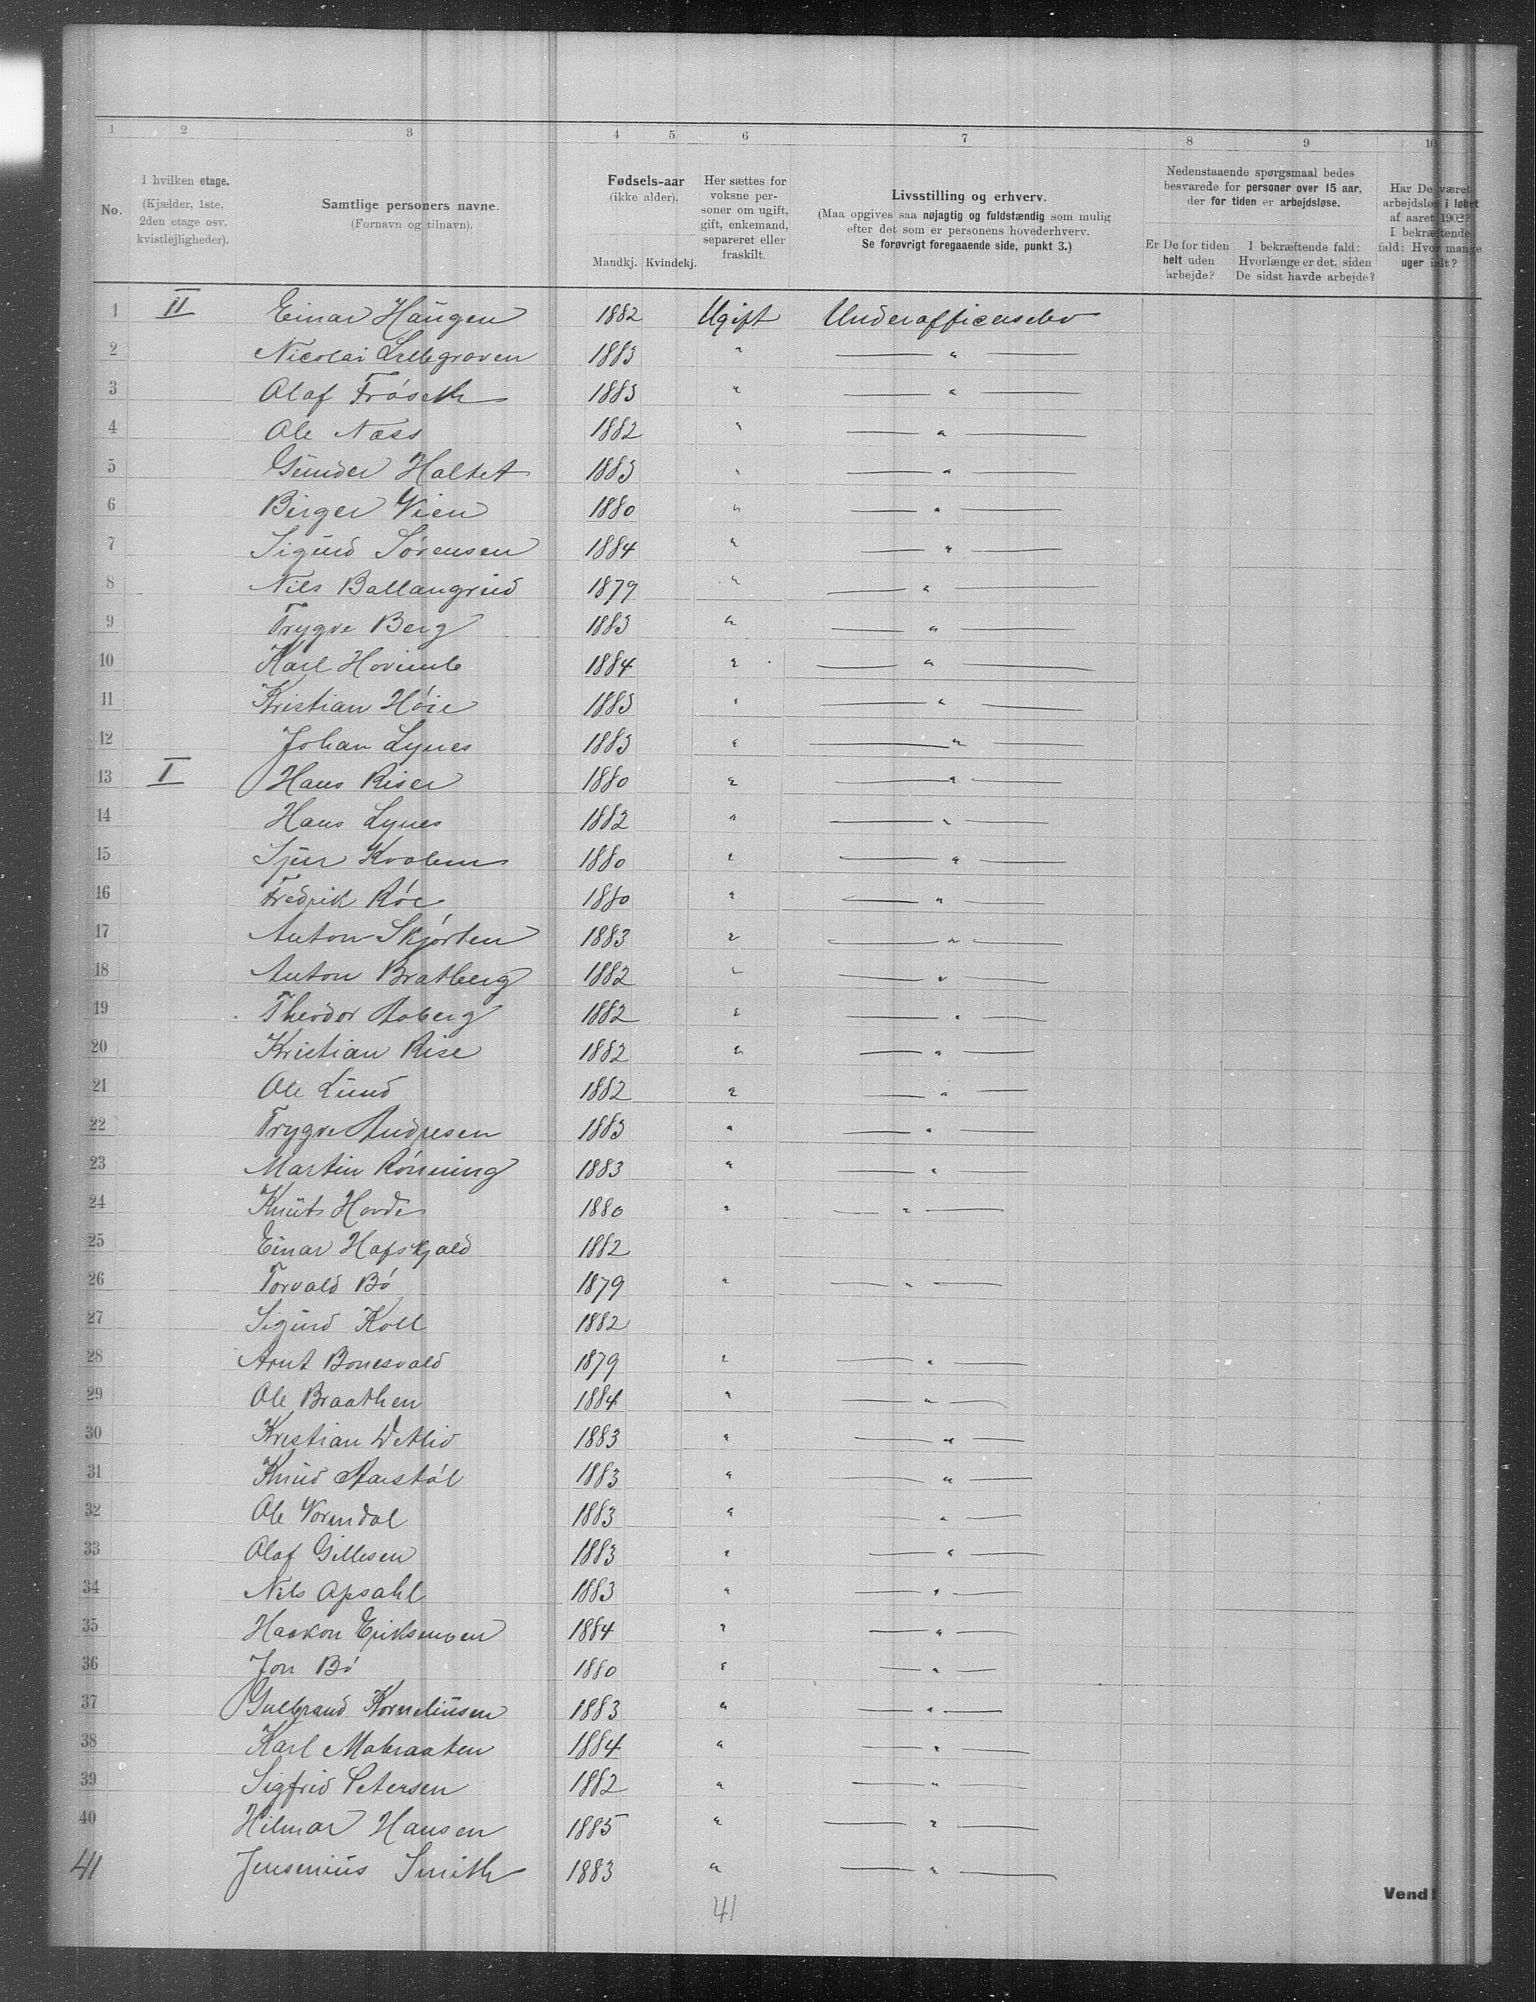 1 2 3 4 5 6 7 8 9 10
No.
I hvilken etage.
(Kjælder, 1ste,
2den etage osv.
kvistlejligheder).
Samtlige personers navne.
(Fornavn og tilnavn).
Fødsels-aar
(ikke alder).
Mandkj. Kvindekj.
Her sættes for
voksne per-
soner om ugift,
gift, enkemand,
separeret eller
fraskilt.
Livsstilling og erhverv.
(Maa opgives saa nøjagtig og fuldstændig som mulig
efter det som er personens hovederhverv.
Se forøvrigt foregaaende side, punkt 3.)
Nedenstaaende spørgsmaal bedes
besvarede for personer over 15 aar,
der for tiden er arbejdsløse.
Er De for tiden
helt uden
arbejde?
I bekræftende fald:
Hvorlænge er det, siden
De sidst havde arbejde?
Har De været
arbejdsløs i løbet
af aaret 1902?
I bekræftende
fald: Hvor mange
uger ialt?
1 II Einar Haugen 1882 Ugift Underofficerselev
2 Nicolai Lillegraven 1883 " — " —
3 Olaf Frøseth 1883 " — " —
4 Ole Næss 1882 " — " —
5 Gunder Holtet 1883 " — " —
6 Birger Wien 1880 " — " —
7 Sigurd Sørensen 1884 " — " —
8 Nils Ballangrud 1879 " — " —
9 Trygve Berg 1883 " — " —
10 Karl 1884 " — " —
11 Kristian Høie 1883 " — " —
12 Johan Lynes 1883 " — " —
13 I Hans Riser 1880 " — " —
14 Hans Lynes 1882 " — " —
15 1880 " — " —
16 Fredrik Røe 1880 " — " —
17 Anton Skjørten 1883 " — " —
18 Anton Bratberg 1882 " — " —
19 Theodor Aaberg 1882 " — " —
20 Kristian Rise 1882 " — " —
21 Ole Lund 1882 " — " —
22 Trygve Andresen 1883 " — " —
23 Martin Rønning 1883 " — " —
24 Knut Hovde 1880 " — " —
25 Einar Hafskjold 1882
26 Torvald Bø 1879 " — " —
27 Sigurd Koll 1882
28 Arnt Bonesvald 1879 " — " —
29 Ole Braathen 1884 " — " —
30 Kristian 1883 " — " —
31 Knud Aarstøl 1883 " — " —
32 Ole Vormdal 1883 " — " —
33 Olaf Gillesen 1883 " — " —
34 Nils Opsahl 1883 " — " —
35 Haakon 1884 " — " —
36 Jon Bø 1880 " — " —
37 Gulbrand Korneliusen 1883 " — " —
38 Karl Mobraaten 1884 " — " —
39 Sigfrid Petersen 1882 " — " —
40 Hilmar Hansen 1885 " — " —
41 Jensenius Smith 1883 " — " —
41
Vend!